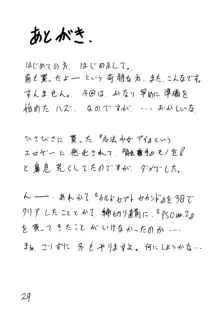 あとがき.
はじめての方、はじめまして。
前も買ったよーという奇特な方、また、こんなです。
すんません。今回は、かなり早めに準備を
始めたハズ、なのですが、…おかしいな
ひさびさに買った『魔法少女アイ』という
エロゲーに感化されて、モノを
と鼻息荒くしてたのですが、ダメでした。
んー、あれか?『カルドセプト セカンド』を3日で
クリアしたことか? 締切り直前に、『PSO ver.2』
を買ってきたことがいけなかったのか…
まぁ、こりずに 次もやりますよ。何にしようかな…
29